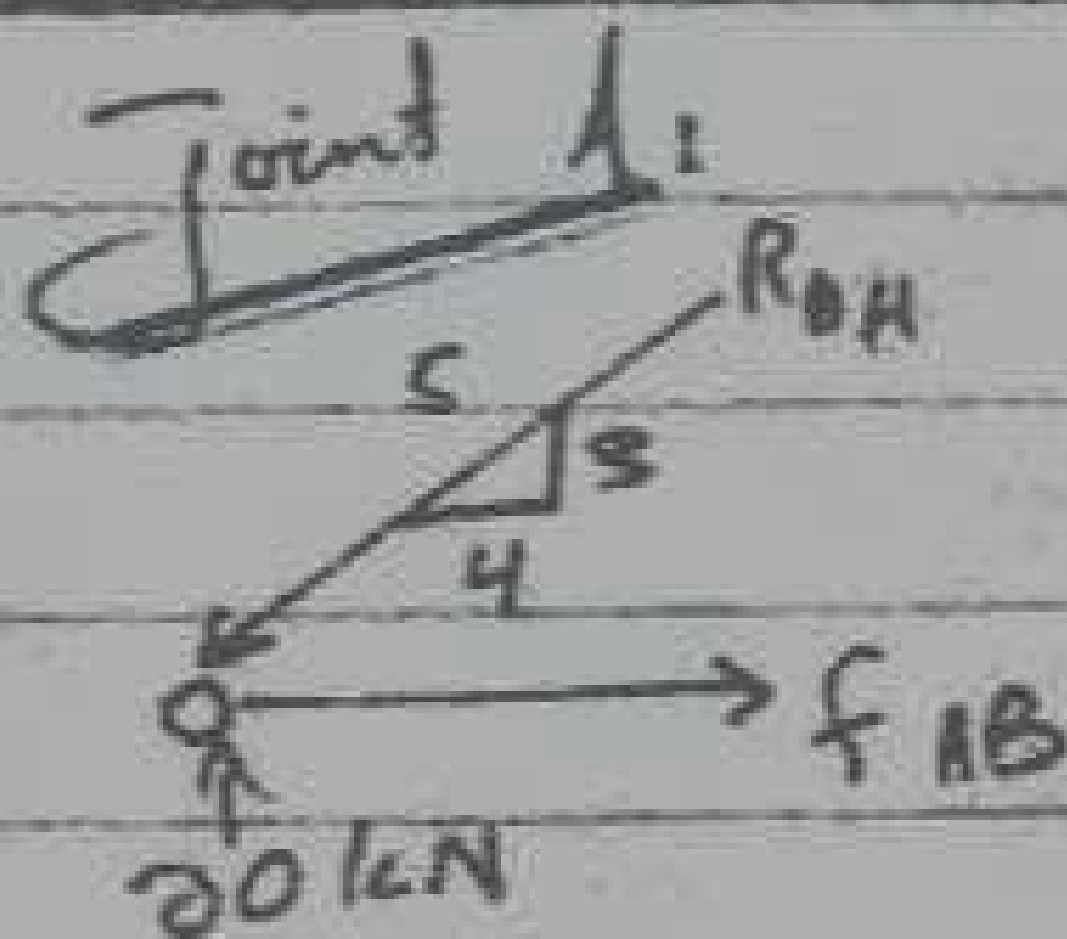 Joint A:
5
3
4
F AB
20 kN